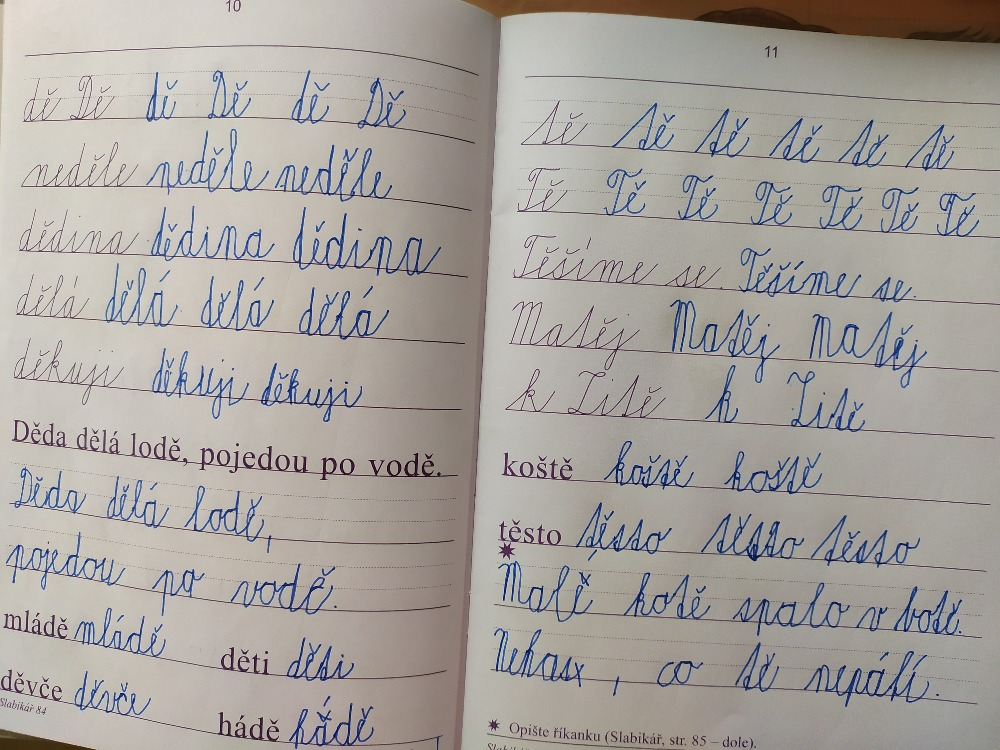 10
dě Dě dě Dě dě Dě
neděle neděle neděle
dědina dědina dědina
dělá dělá dělá dělá
děkuji děkuji děkuji
Děda dělá lodě, pojedou po vodě.
Děda dělá lodě,
pojedou po vodě.
mládě mládě děti děti
děvče děvče hádě hádě
Slabikář 84
11
tě tě tě tě tě tě
Tě Tě Tě Tě Tě Tě Tě
Těšíme se. Těšíme se.
Matěj Matěj Matěj
k Zitě k Zitě
koště koště koště
těsto těsto těsto těsto
Malé kotě spalo v botě.
Nehas, co tě nepálí.
✷ Opište říkanku (Slabikář, str. 85 – dole).